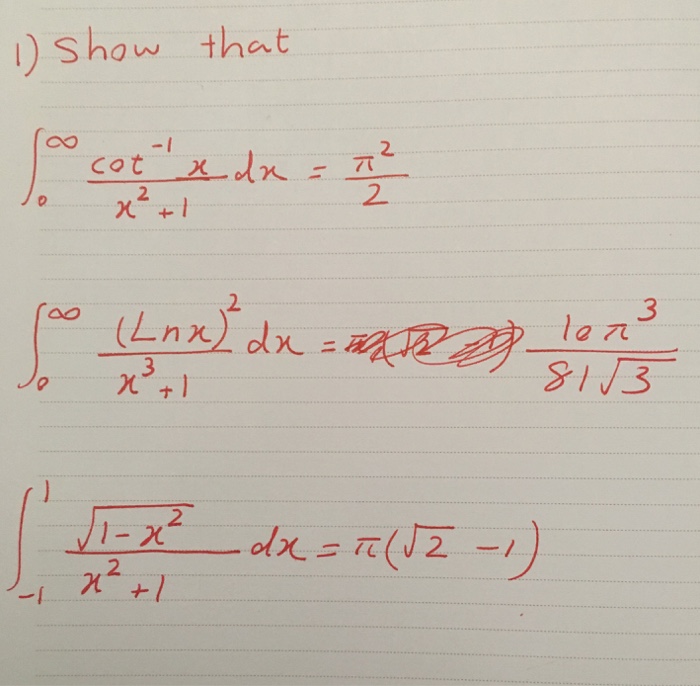 1) Show that
∫₀^∞ cot⁻¹ x / (x² + 1) dx = π² / 2
∫₀^∞ (Ln x)² / (x³ + 1) dx = 10 π³ / (81√3)
∫₋₁^1 √(1 - x²) / (x² + 1) dx = π(√2 - 1)